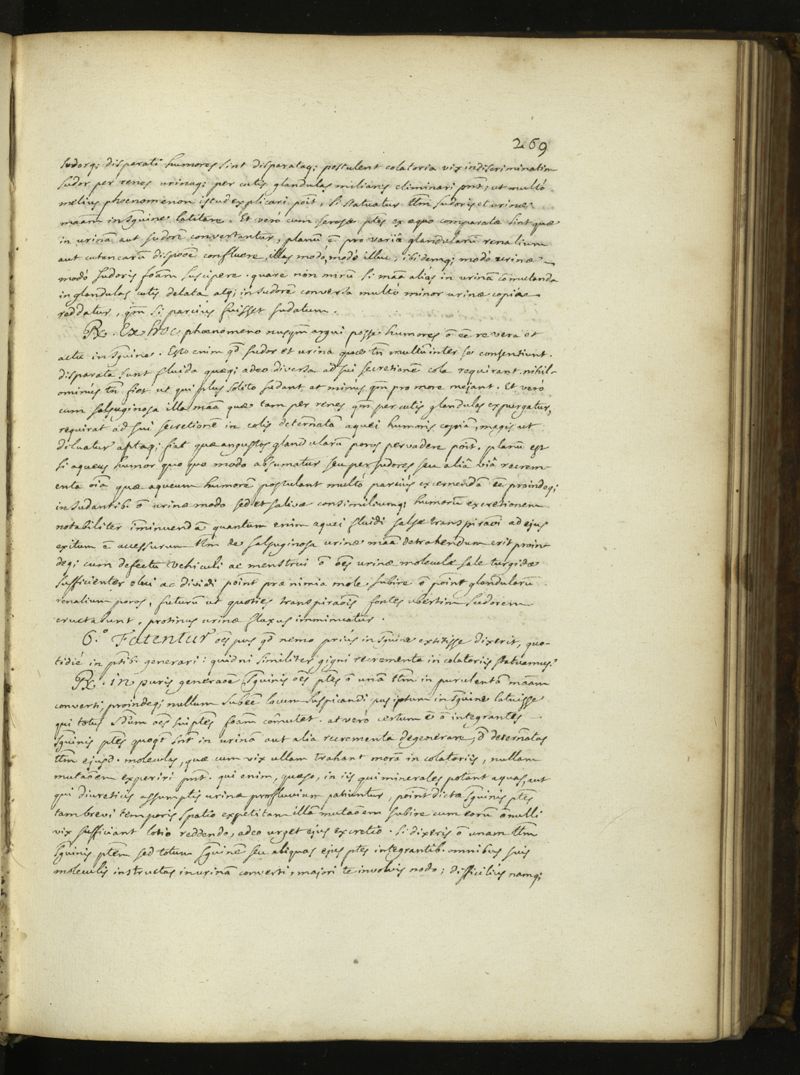 269
sudorq; disparati humores sint disparataq; postulent colatoria vix indiscriminatim
sudor per renes urinaq; per cutis glandulas miliares eliminari pnt; ut multò
melius phœnomenon istud explicari poit, si statuatur tm sudoris et urinæ
maam in sguine latitare. Et vero cum serosæ ptes ex æquo comparatæ sint quæ
in urinā aut sudorē convertantur, planū ē pro variā glandularū renalium
aut cutencarū dispoōe confluere, illas modò, modò illuc, ibidemq; modò urinæ
modò sudoris foam suscipere. quare non mirū si maā alias in urinā comutanda
in glandulas cutis delata, atq; in sudorē conversa multò minor urinæ copia
reddatur, qm si parcius fuisset sudatum.
Rx. Ex hoc phœnomeno nusqm argui posse humores ō eē re vera et
actu in sguine. Esto enim qd sudor et urina quæ tn multū inter se consentiunt
disparata sunt fluida quæq; adeo diversa ad sui secretionē cola requirant. nihil-
ominus tn fiet ut qui plus solito sudant, et minus qm pro more meiant. Et vero
cum salsuginosa illa maa quæ tam per renes qm per cutis glandulas expurgatur,
requirat ad sui secretionē in colis determatā aquei humoris copiā, magis ut
diluatur aptaq; fiat quæ angustos glandularū poros pervadere poit. planū est
si aqueus humor quo quo modo absumatur seu per sudores seu aliā viā recrem-
enta oia quæ aqueum humorē postulant multò parcius excernenda eē proindeq;
in sudantib. ō urinæ modo sed et salivæ consimiliumq; humorū excretionem
notabiliter imminuendā quantum enim aquei fluidi salsæ transpiraōi ad ejus
exitum ē accessurum tm de salsuginosa urinæ maā detrahendum erit proin
deq; cum defectu vehiculi ac menstrui ō oēs urinæ moleculæ sale turgidæ
sufficienter solvi ac dividi point præ nimia mole. subire ō point glandularū
renalium poros, futurū ut quoties transpiraōis fontes ubertim sudorem
eructabunt, protinus urinæ fluxus imminuatur.
6.° Fatentur oēs pus qd nemo prius in sguine extitisse dixerit, quo-
tidie in ptib. generari: quidni similiter gigni recrementa in colatoriis statuamus.
Rx. in puris generaoē sguinis oēs ptes ō unā tm in purulentā maam
converti, proindeq; nullum subeē locum suspicandi pus ipsum in sguine latuisse
qui totus sdum oēs sui ptes foam comutet. at verò certum ē ō integrantes
sguinis ptes quoqt snt in urinā aut alia recrementa degenerare, sd determatas
tm ejusd. moleculas, quæ cum vix ullam trahant morā in colatoriis, nullam
mutaōem experiri pnt. qui enim, quæso, in iis qui minerales potant aquas, aut
qui diureticis assumptis urinæ profluvium patiuntur, point dictæ sguinis ptes
tam brevi temporis spatio expetitam illā mutaōem subire cum eorū nonnulli
vix sufficiant lotio reddendo, adeo urget ejus excretio. si dixeris ō unam tm
sguinis ptem sed totum sguinē seu aliquas ejus ptes integrantib. omnibus suis
moleculis instructas in urinā converti, majori te involvis nodo; difficilius namq;